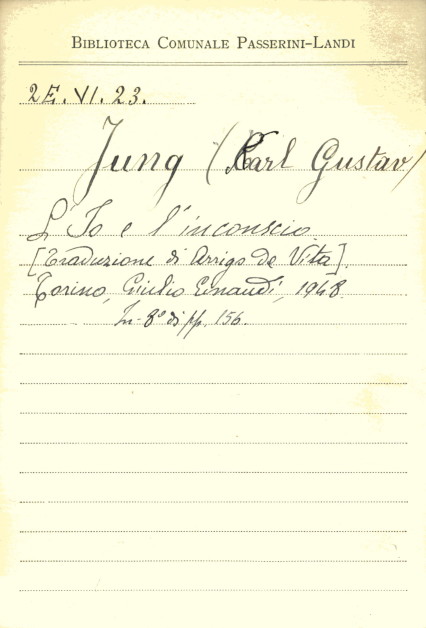 BIBLIOTECA COMUNALE PASSERINI-LANDI
2E. VI. 23.
Jung (Karl Gustav)
L'Io e l'inconscio
[Traduzione di Arrigo de Vita].
Torino, Giulio Einaudi, 1948.
In-8° di pp. 156.